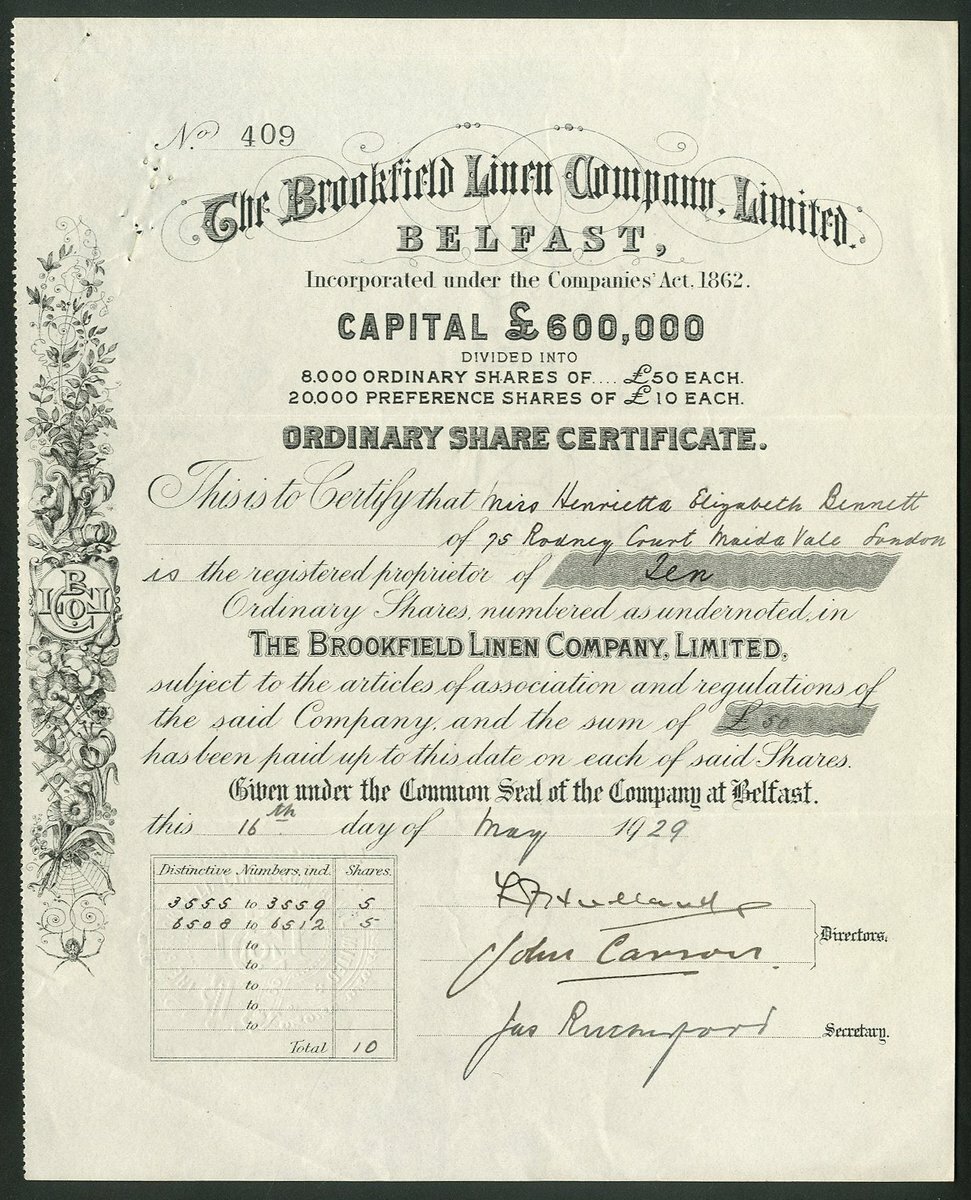 No. 409
The Brookfield Linen Company, Limited.
BELFAST,
Incorporated under the Companies' Act, 1862.
CAPITAL £600,000
DIVIDED INTO
8,000 ORDINARY SHARES OF.... £50 EACH.
20,000 PREFERENCE SHARES OF £10 EACH.
ORDINARY SHARE CERTIFICATE.
This is to Certify that Miss Henrietta Elizabeth Bennett
of 75 Rodney Court Maida Vale London
is the registered proprietor of Ten
Ordinary Shares, numbered as undernoted, in
THE BROOKFIELD LINEN COMPANY, LIMITED,
subject to the articles of association and regulations of
the said Company, and the sum of £50
has been paid up to this date on each of said Shares.
Given under the Common Seal of the Company at Belfast.
this 16th day of May 1929
Distinctive Numbers, incl. Shares.
3555 to 3559 5
6508 to 6512 5
to
to
to
to
to
Total 10
John Carson
Directors.
Jas Rutherford Secretary.